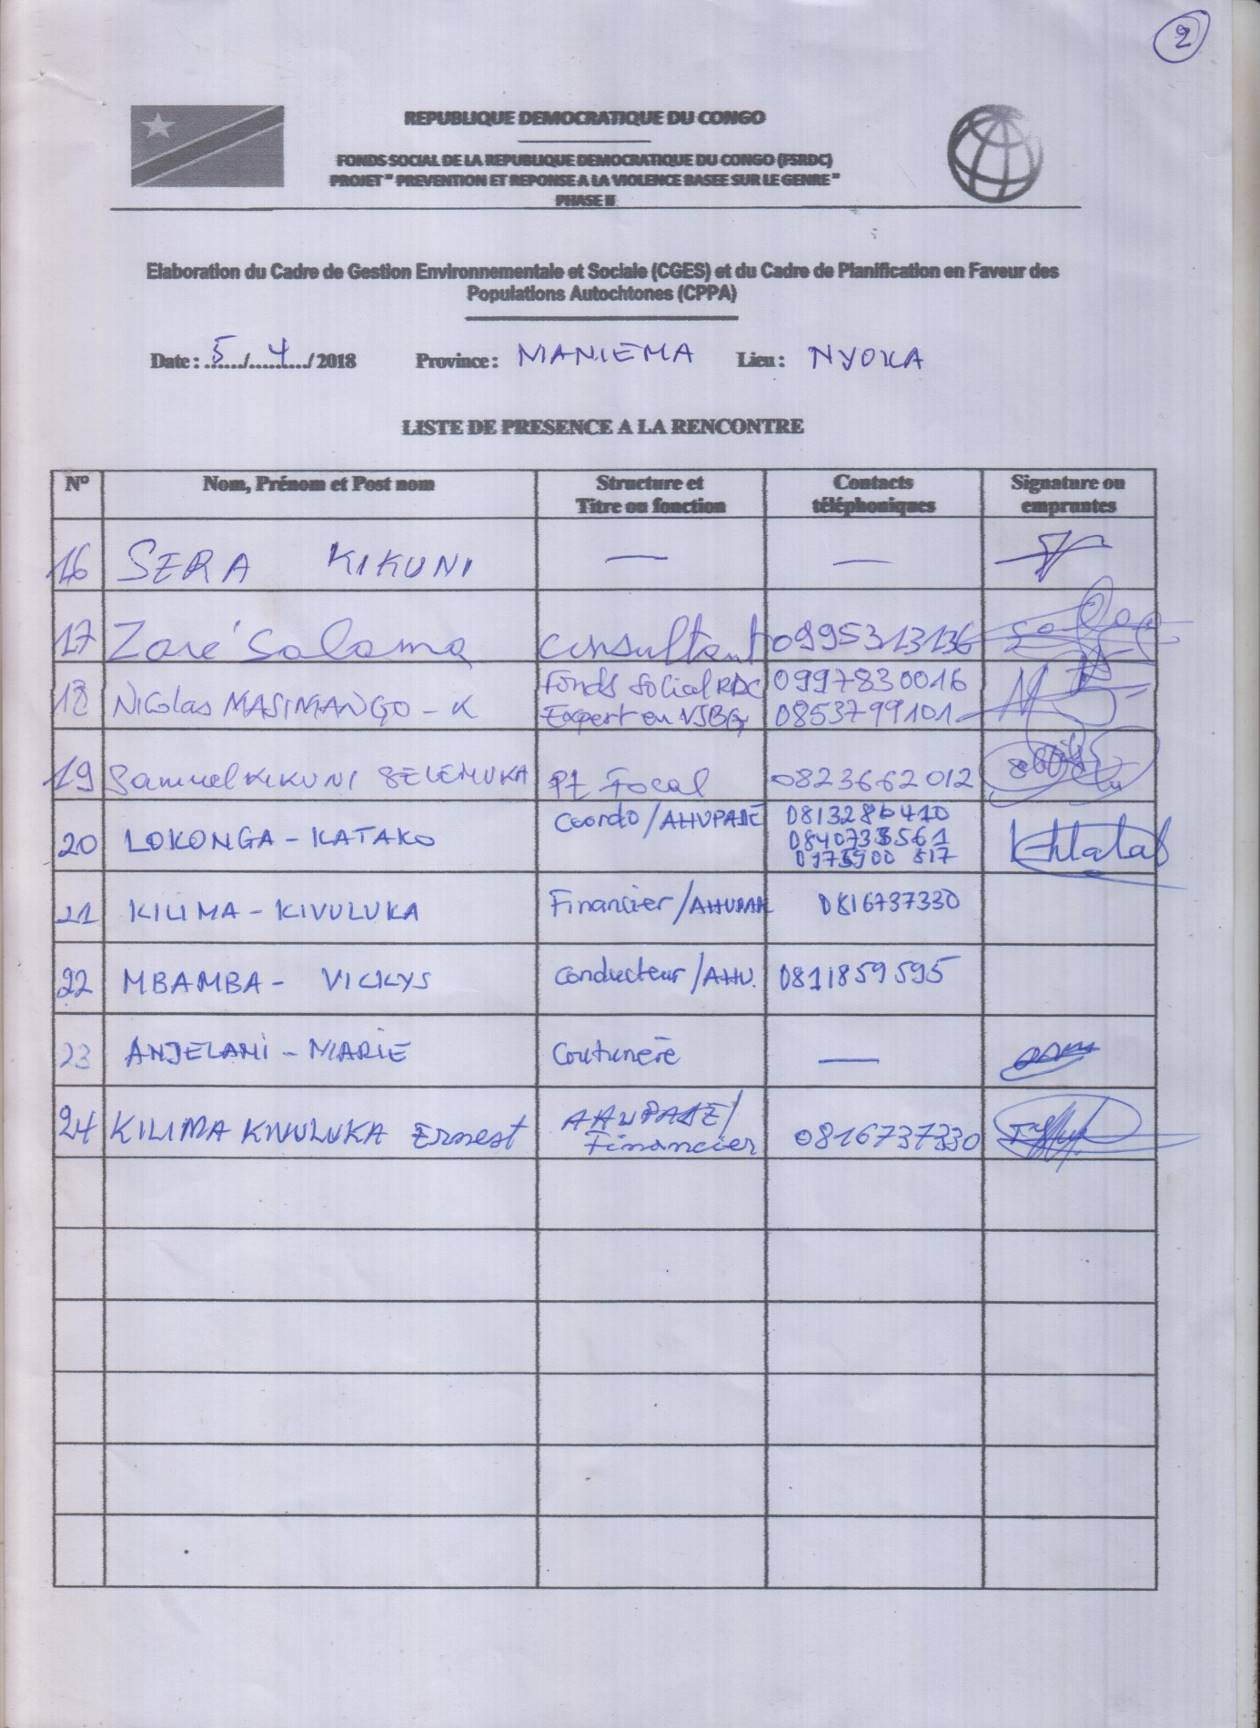 2
REPUBLIQUE DEMOCRATIQUE DU CONGO
FONDS SOCIAL DE LA REPUBLIQUE DEMOCRATIQUE DU CONGO (FSRDC)
PROJET " PREVENTION ET REPONSE A LA VIOLENCE BASEE SUR LE GENRE "
PHASE II
Elaboration du Cadre de Gestion Environnementale et Sociale (CGES) et du Cadre de Planification en Faveur des
Populations Autochtones (CPPA)
Date : 5/4/2018 Province : MANIEMA Lieu : NYOKA
LISTE DE PRESENCE A LA RENCONTRE
N° Nom, Prénom et Post nom Structure et Titre ou fonction Contacts téléphoniques Signature ou empruntes
16 SERA KIKUNI — —
17 Zaré Salama Consultant 0995313136
18 Nicolas MASIMANGO - K Fonds Social RDC 0997830016
Expert en VSBG 0853799101
19 Samuel KIKUNI SELEMUKA Pt Focal 0823662012
20 LOKONGA - KATAKO Coordo/AHUPADE
21 KILIMA - KIVULUKA Financier/ 0816737330
22 MBAMBA - VICKYS Conducteur/AHU. 0811859595
23 ANJELANI - MARIE Couturière —
24 KILIMA KIVULUKA Ernest AHUPADE/
Financier 0816737330